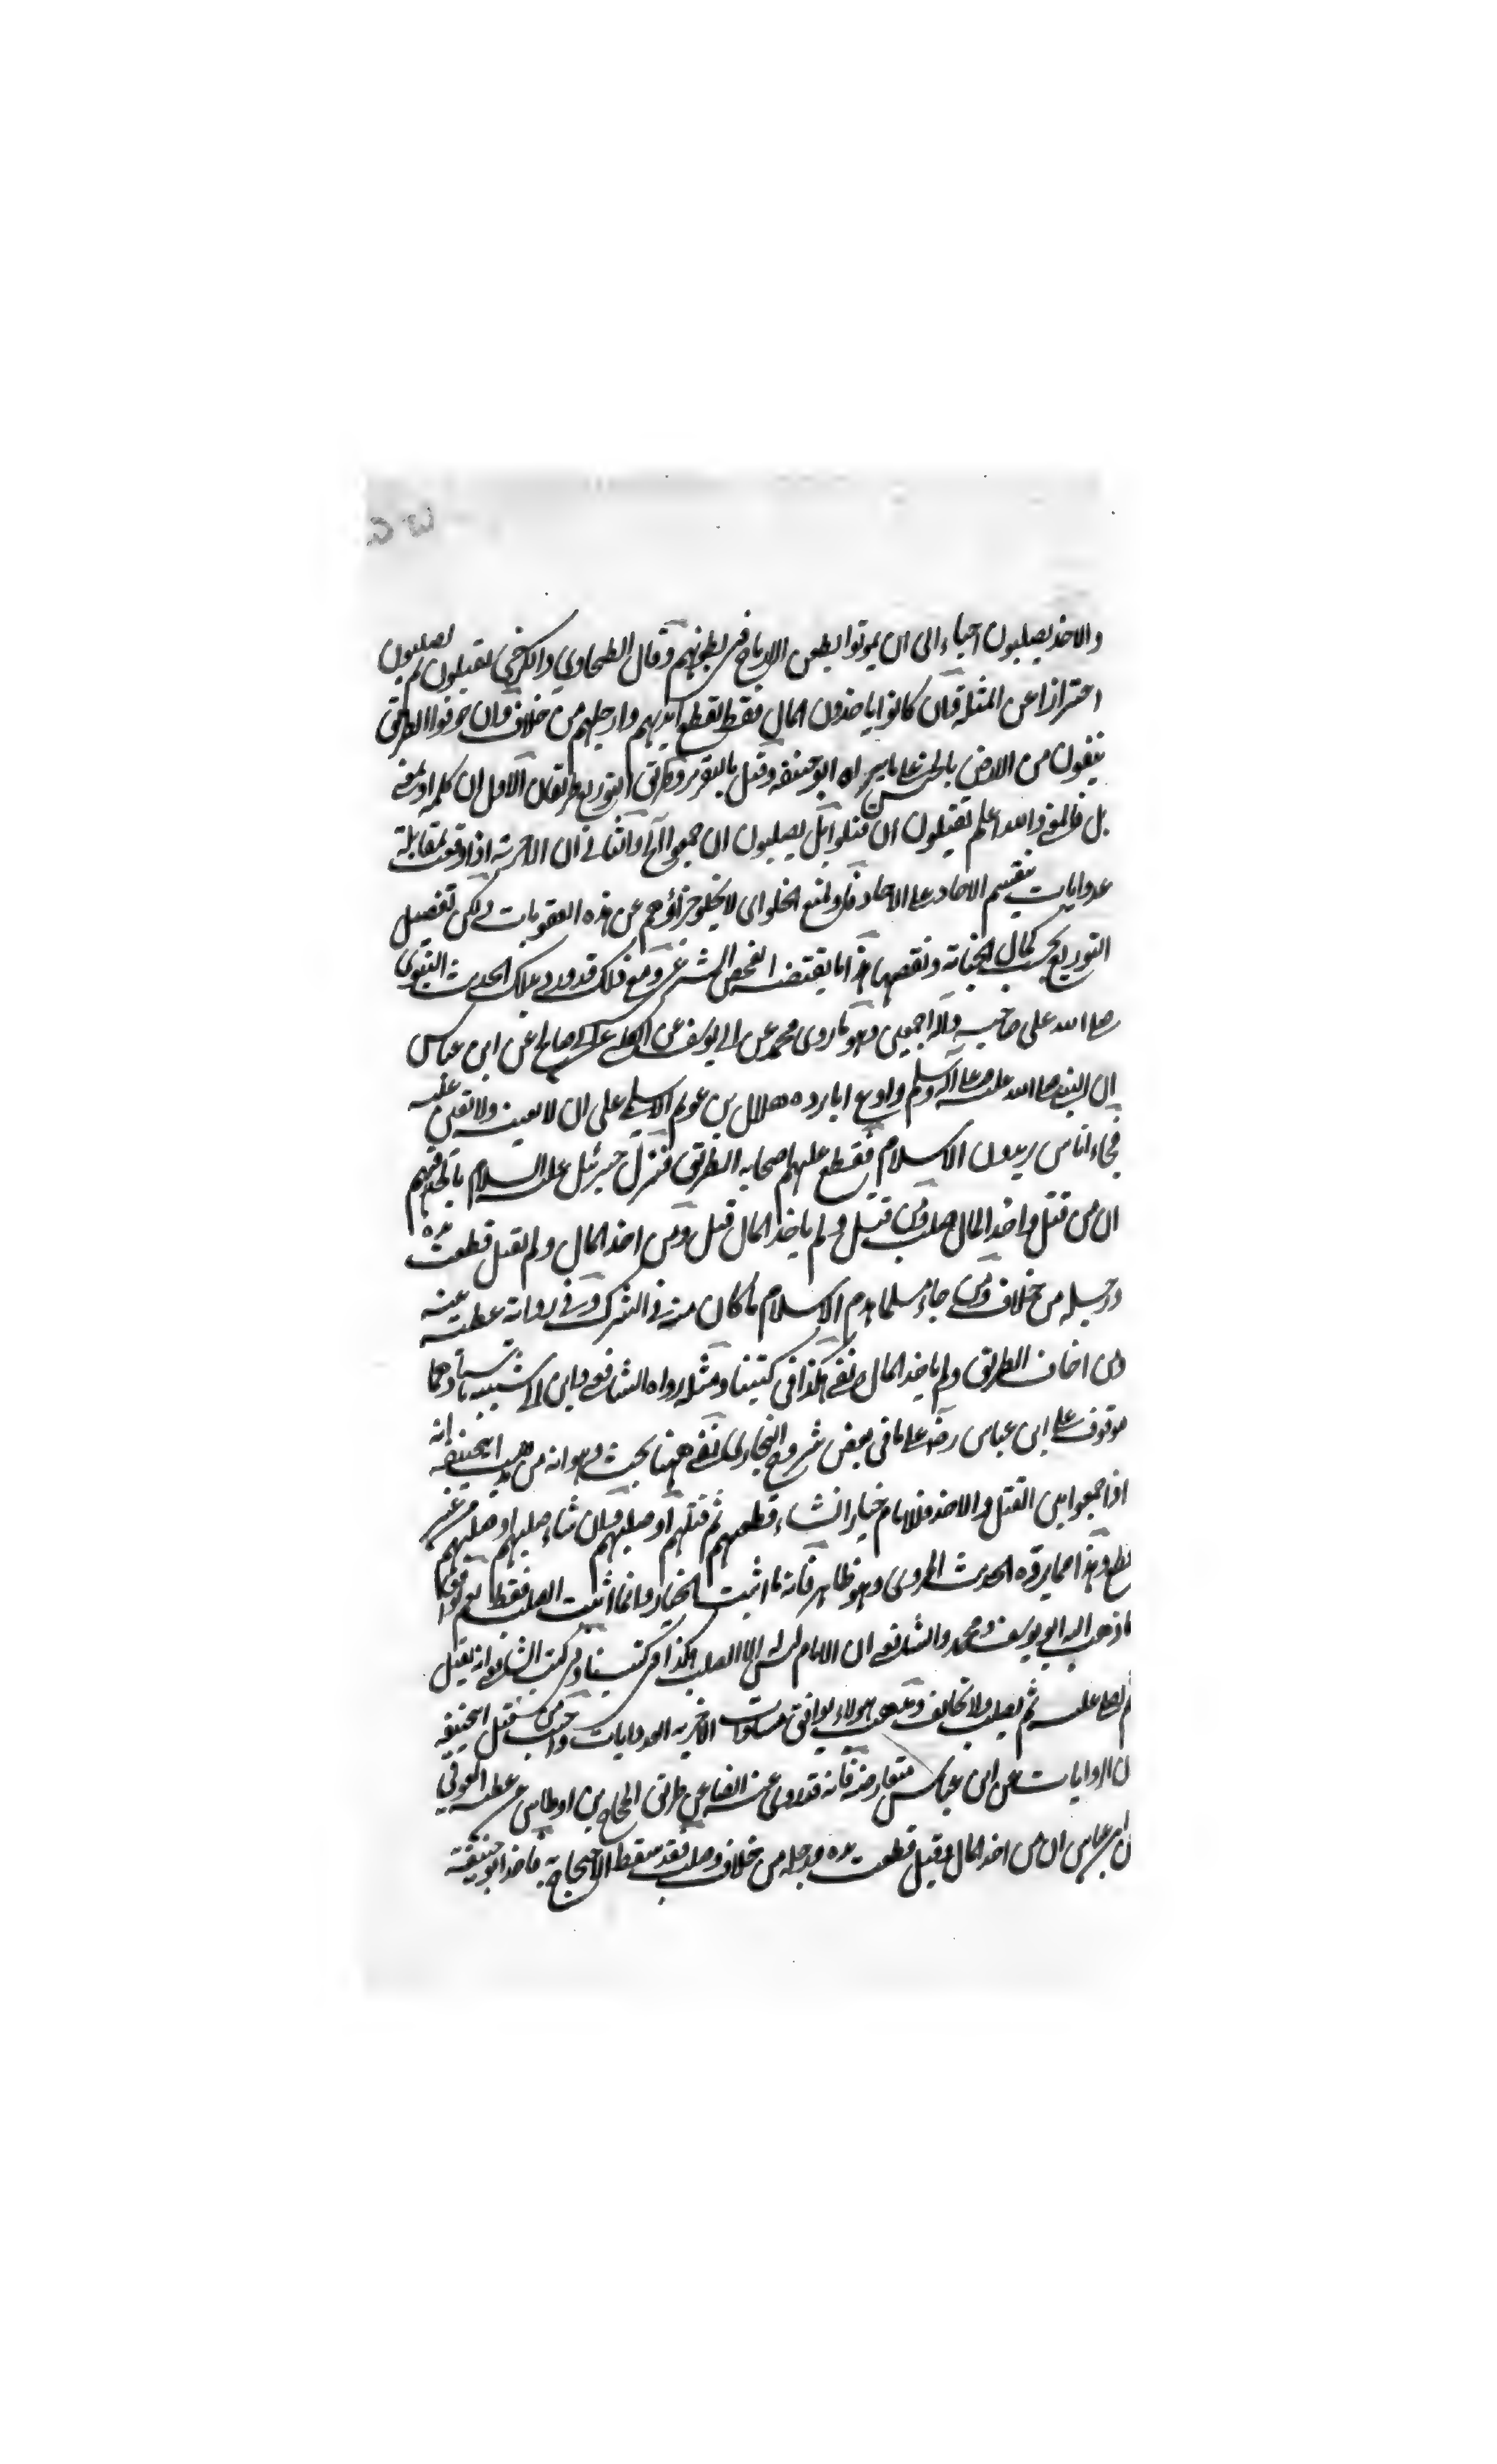 والاخذ يصلبون احياء الى ان يموتوا بطعن الارماح فى بطونهم وقال الطحاوي والكرخي يقتلون ثم يصلبون
احترازا عن المثلة وان كانوا ياخذون المال فقط يقطع ايديهم وارجلهم من خلاف وان خوفوا الطريق
ينفون من الارض بالحبس على ما يراه ابو حنيفه وقيل بالتقرير وطريق التوزيع طريقان الاول ان كلمه او بمعنى
بل فالمعنى والله اعلم يقتلون ان قتلوا بل يصلبون ان جمعوا الخ والثاني ان الاجزية اذا وقعت بمقابلة
جنايات ينقسم الاحاد على الاحاد فاو لمنع الخلو اى لا يخلو جزاؤهم عن هذه العقوبات ولكن تفصيل
التوزيع بحسب كمال الجناية ونقصها هذا ما يقتضيه الفحص الشرعي ومع ذلك قد ورد بذلك الحديث النبوى
صلى الله على صاحبه واله اجمعين وهو ما روى محمد عن ابى يوسف عن الكلبي عن ابى صالح عن ابن عباس
ان النبى صلى الله عليه وعلى اله وسلم وادع ابا برده هلال بن عويمر الاسلمي على ان لا يعينه ولا يعين عليه
فجاء اناس يريدون الاسلام فقطع عليهم اصحابه الطريق فنزل جبرئيل عليه السلام بالحد فيهم
ان من قتل واخذ المال صلب ومن قتل ولم ياخذ المال قتل ومن اخذ المال ولم يقتل قطعت يده
ورجله من خلاف ومن جاء مسلما هدم الاسلام ما كان منه فى الشرك وفى رواية عطية عنه
ومن اخاف الطريق ولم ياخذ المال نفي هكذا فى كتبنا ومثله رواه الشافعي وابن ابى شيبه باسنادهما
موقوفا على ابن عباس رضه على ما فى بعض شروح البخارى لكن بقى ههنا بحث وهو انه من مذهب ابيحنيفه انه
اذا جمعوا بين القتل والاخذ فللامام خيار ان شاء قطعهم ثم قتلهم او صلبهم وان شاء صلبهم او قتلهم من غير
قطع وهذا مما يرده الحديث المروى وهو ظاهر فانه ما اثبت الخيار وانما اثبت الصلب فقط نعم يوافق
ما ذهب اليه ابو يوسف ومحمد والشافعي ان الامام ليس له الا الصلب هكذا فى كتبنا وفى كتب الشافعي انه يقتل
ثم يصلى عليه ثم يصلب ولا تخالف ومذهب هؤلاء يوافق الروايات واجيب من قبل ابيحنيفه
ان الروايات عن ابن عباس متعارضة فانه قد روى عنه ايضا عن طريق الحجاج بن ارطاس عن عطيه العوفي
عن ابن عباس ان من اخذ المال وقتل قطعت يده ورجله من خلاف وصلب فقد سقط الاحتجاج به فاخذ ابو حنيفة